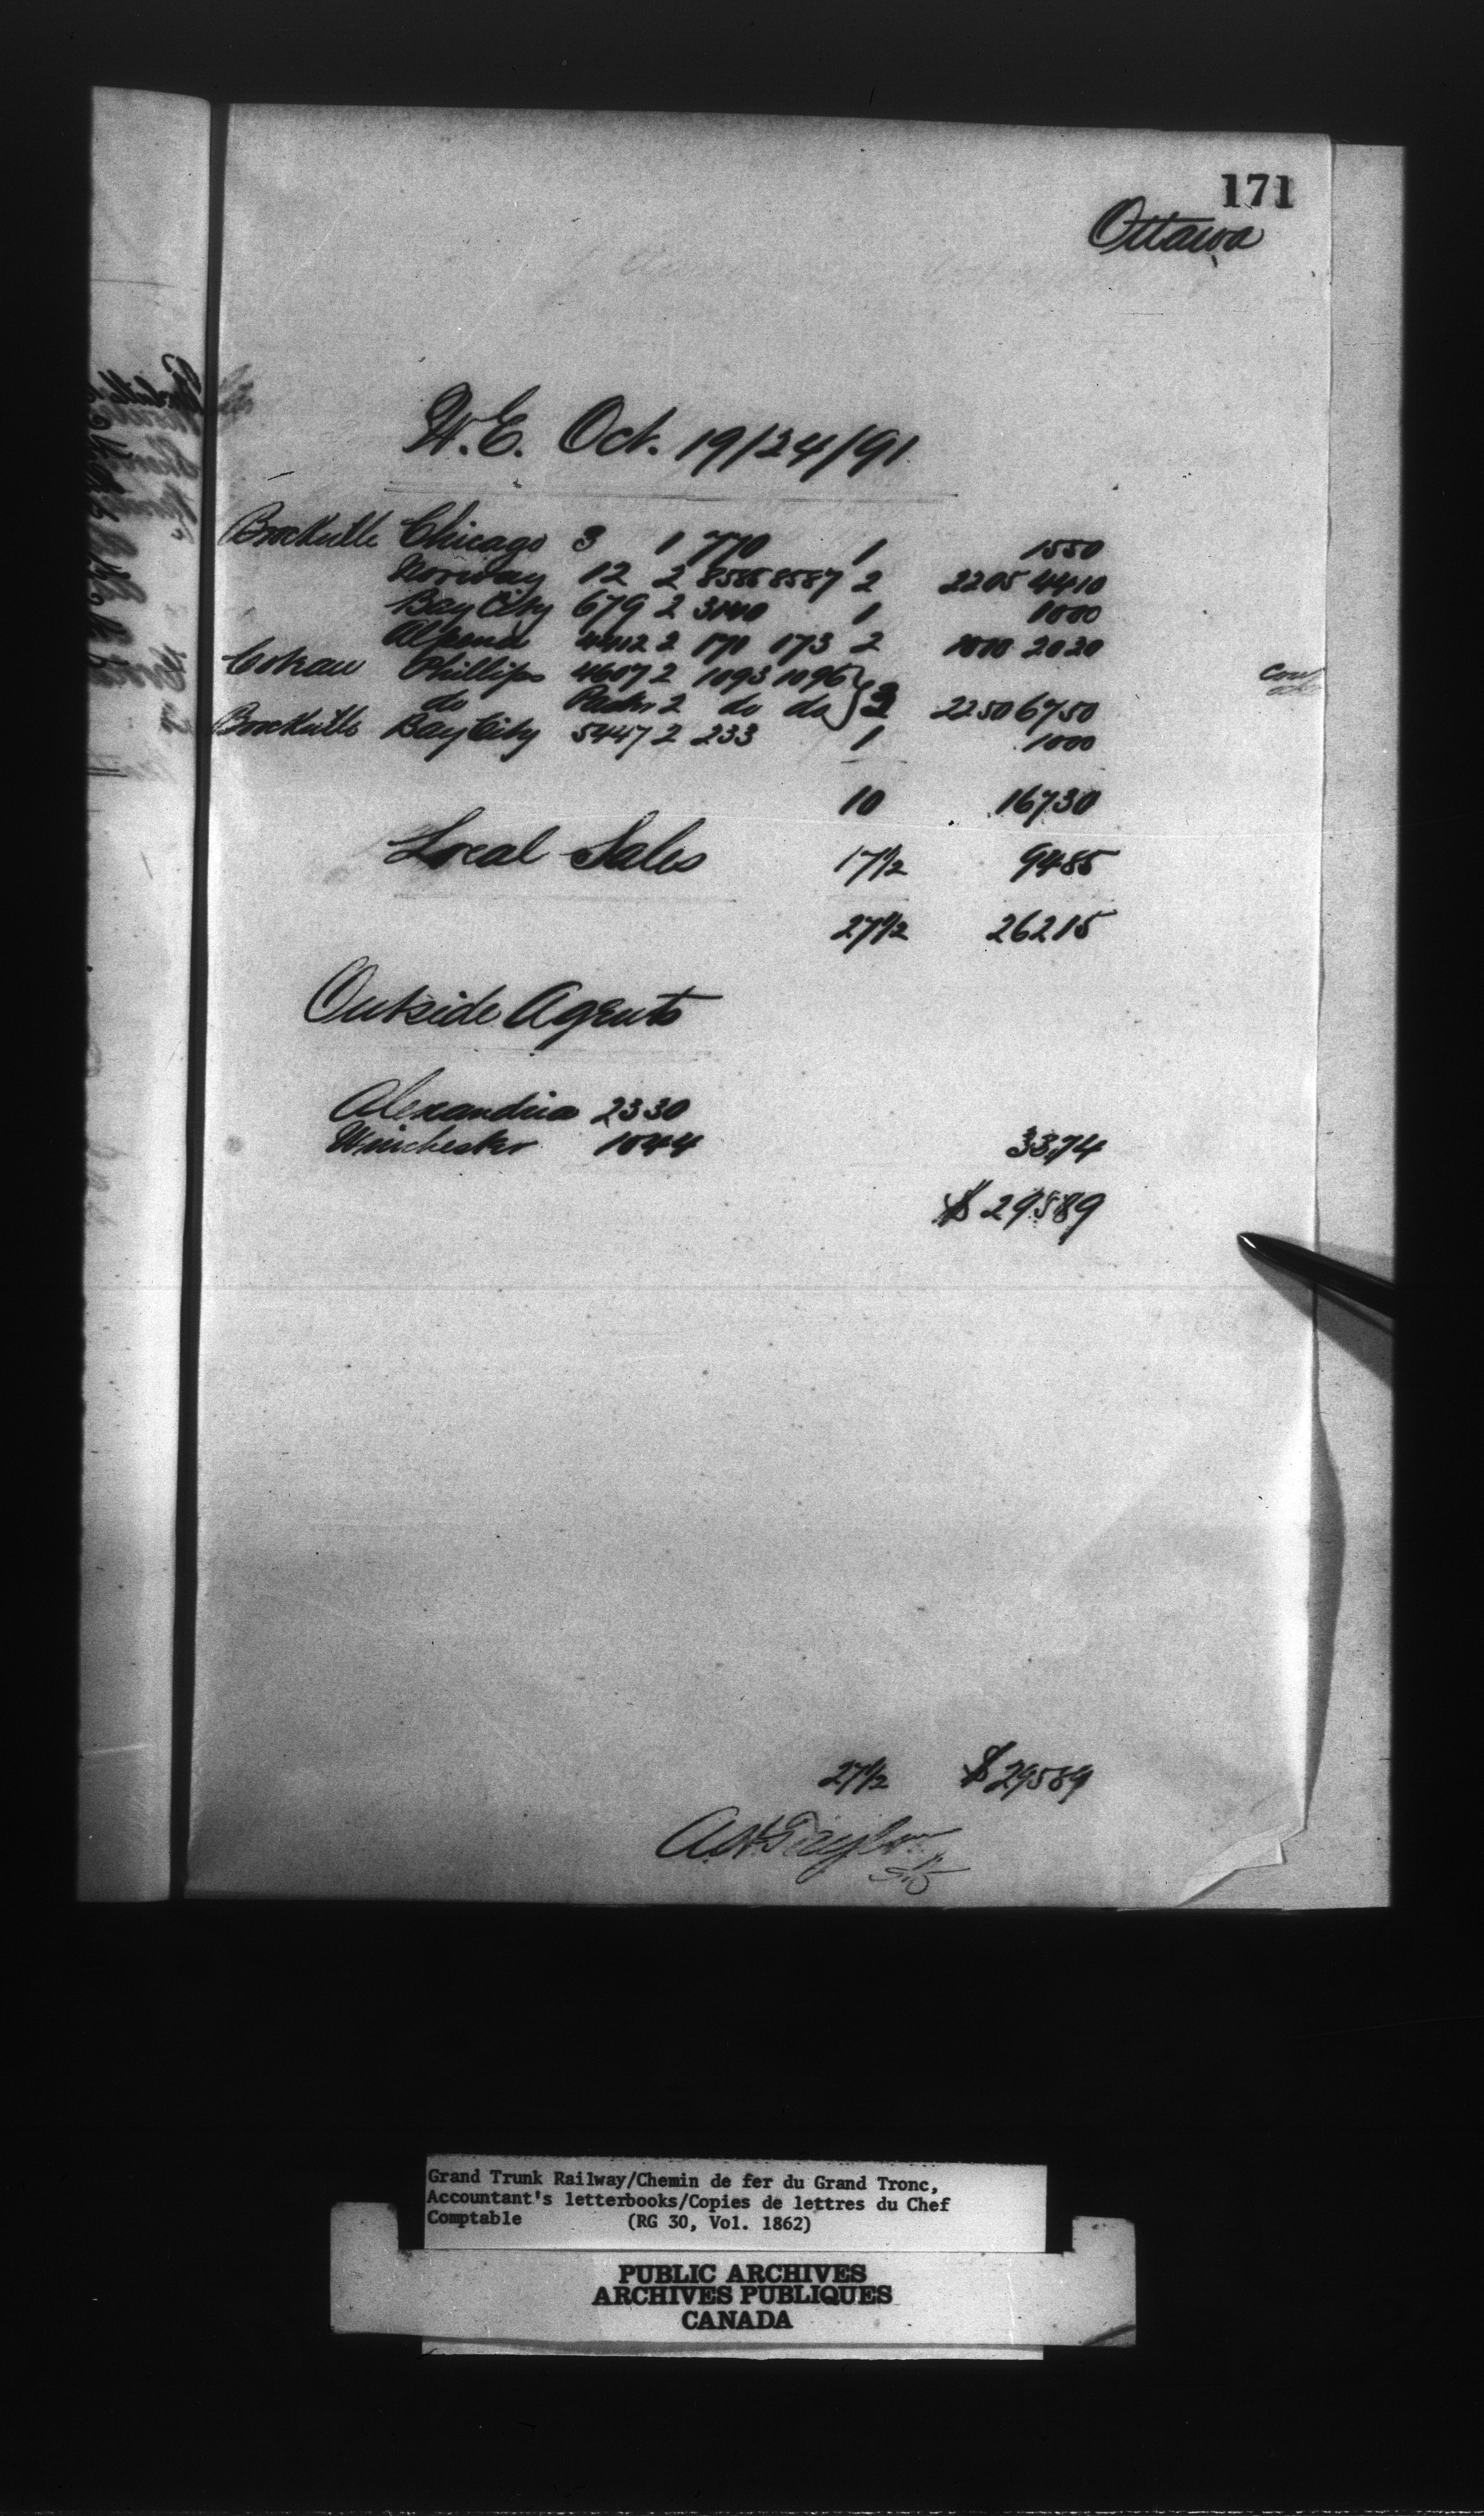 171
Ottawa
W.E. Oct. 19/24/91
Brockville Chicago 3 1 770 1 1550
Norway 12 2 8586 8587 2 2205 4410
Bay City 679 2 3140 1 1000
Alpena 4412 2 171 173 2 2030
Coteau Phillips 4607 2 1093 1096
do 2 do do } 3 2250 6750
Brockville Bay City 5447 2 233 1 1000
10 16730
Local Sales 17½ 9485
27½ 26215
Outside Agents
Alexandria 2330
Winchester 1044 33,74
$ 29589
27½ $ 29589
Grand Trunk Railway/Chemin de fer du Grand Tronc,
Accountant's letterbooks/Copies de lettres du Chef
Comptable (RG 30, Vol. 1862)
PUBLIC ARCHIVES
ARCHIVES PUBLIQUES
CANADA